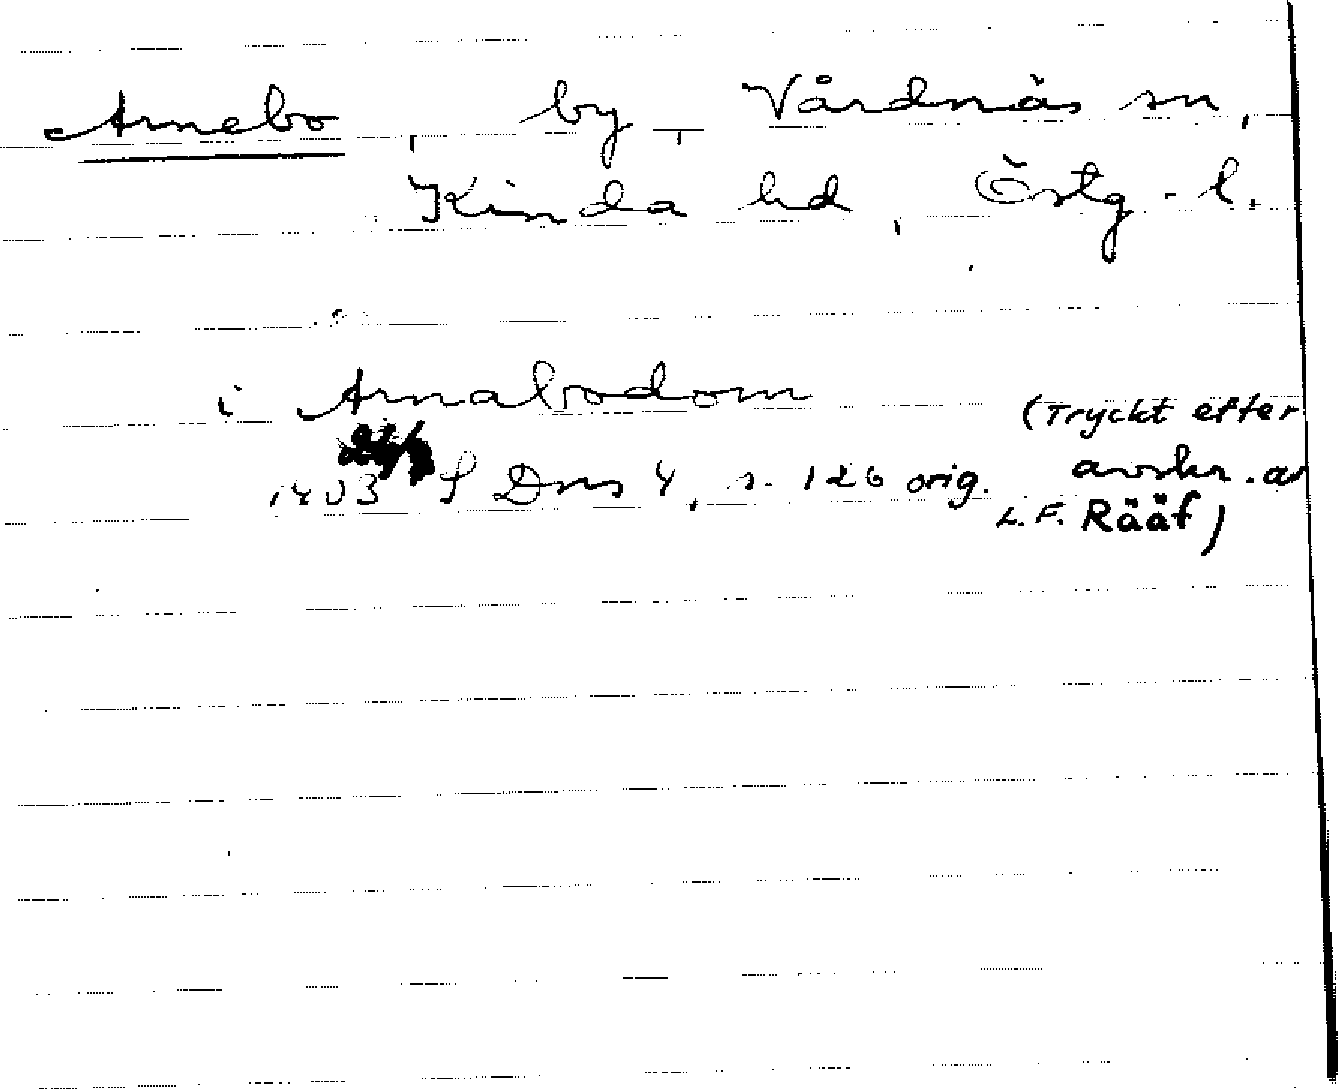 Arnebo, by, Vårdnäs sn,
Kinda hd, Östg-l.
i Arnabodom
(Tryckt efter
1403 S Dns 4, s. 126 orig.
avskr. av
L.F. Rääf)